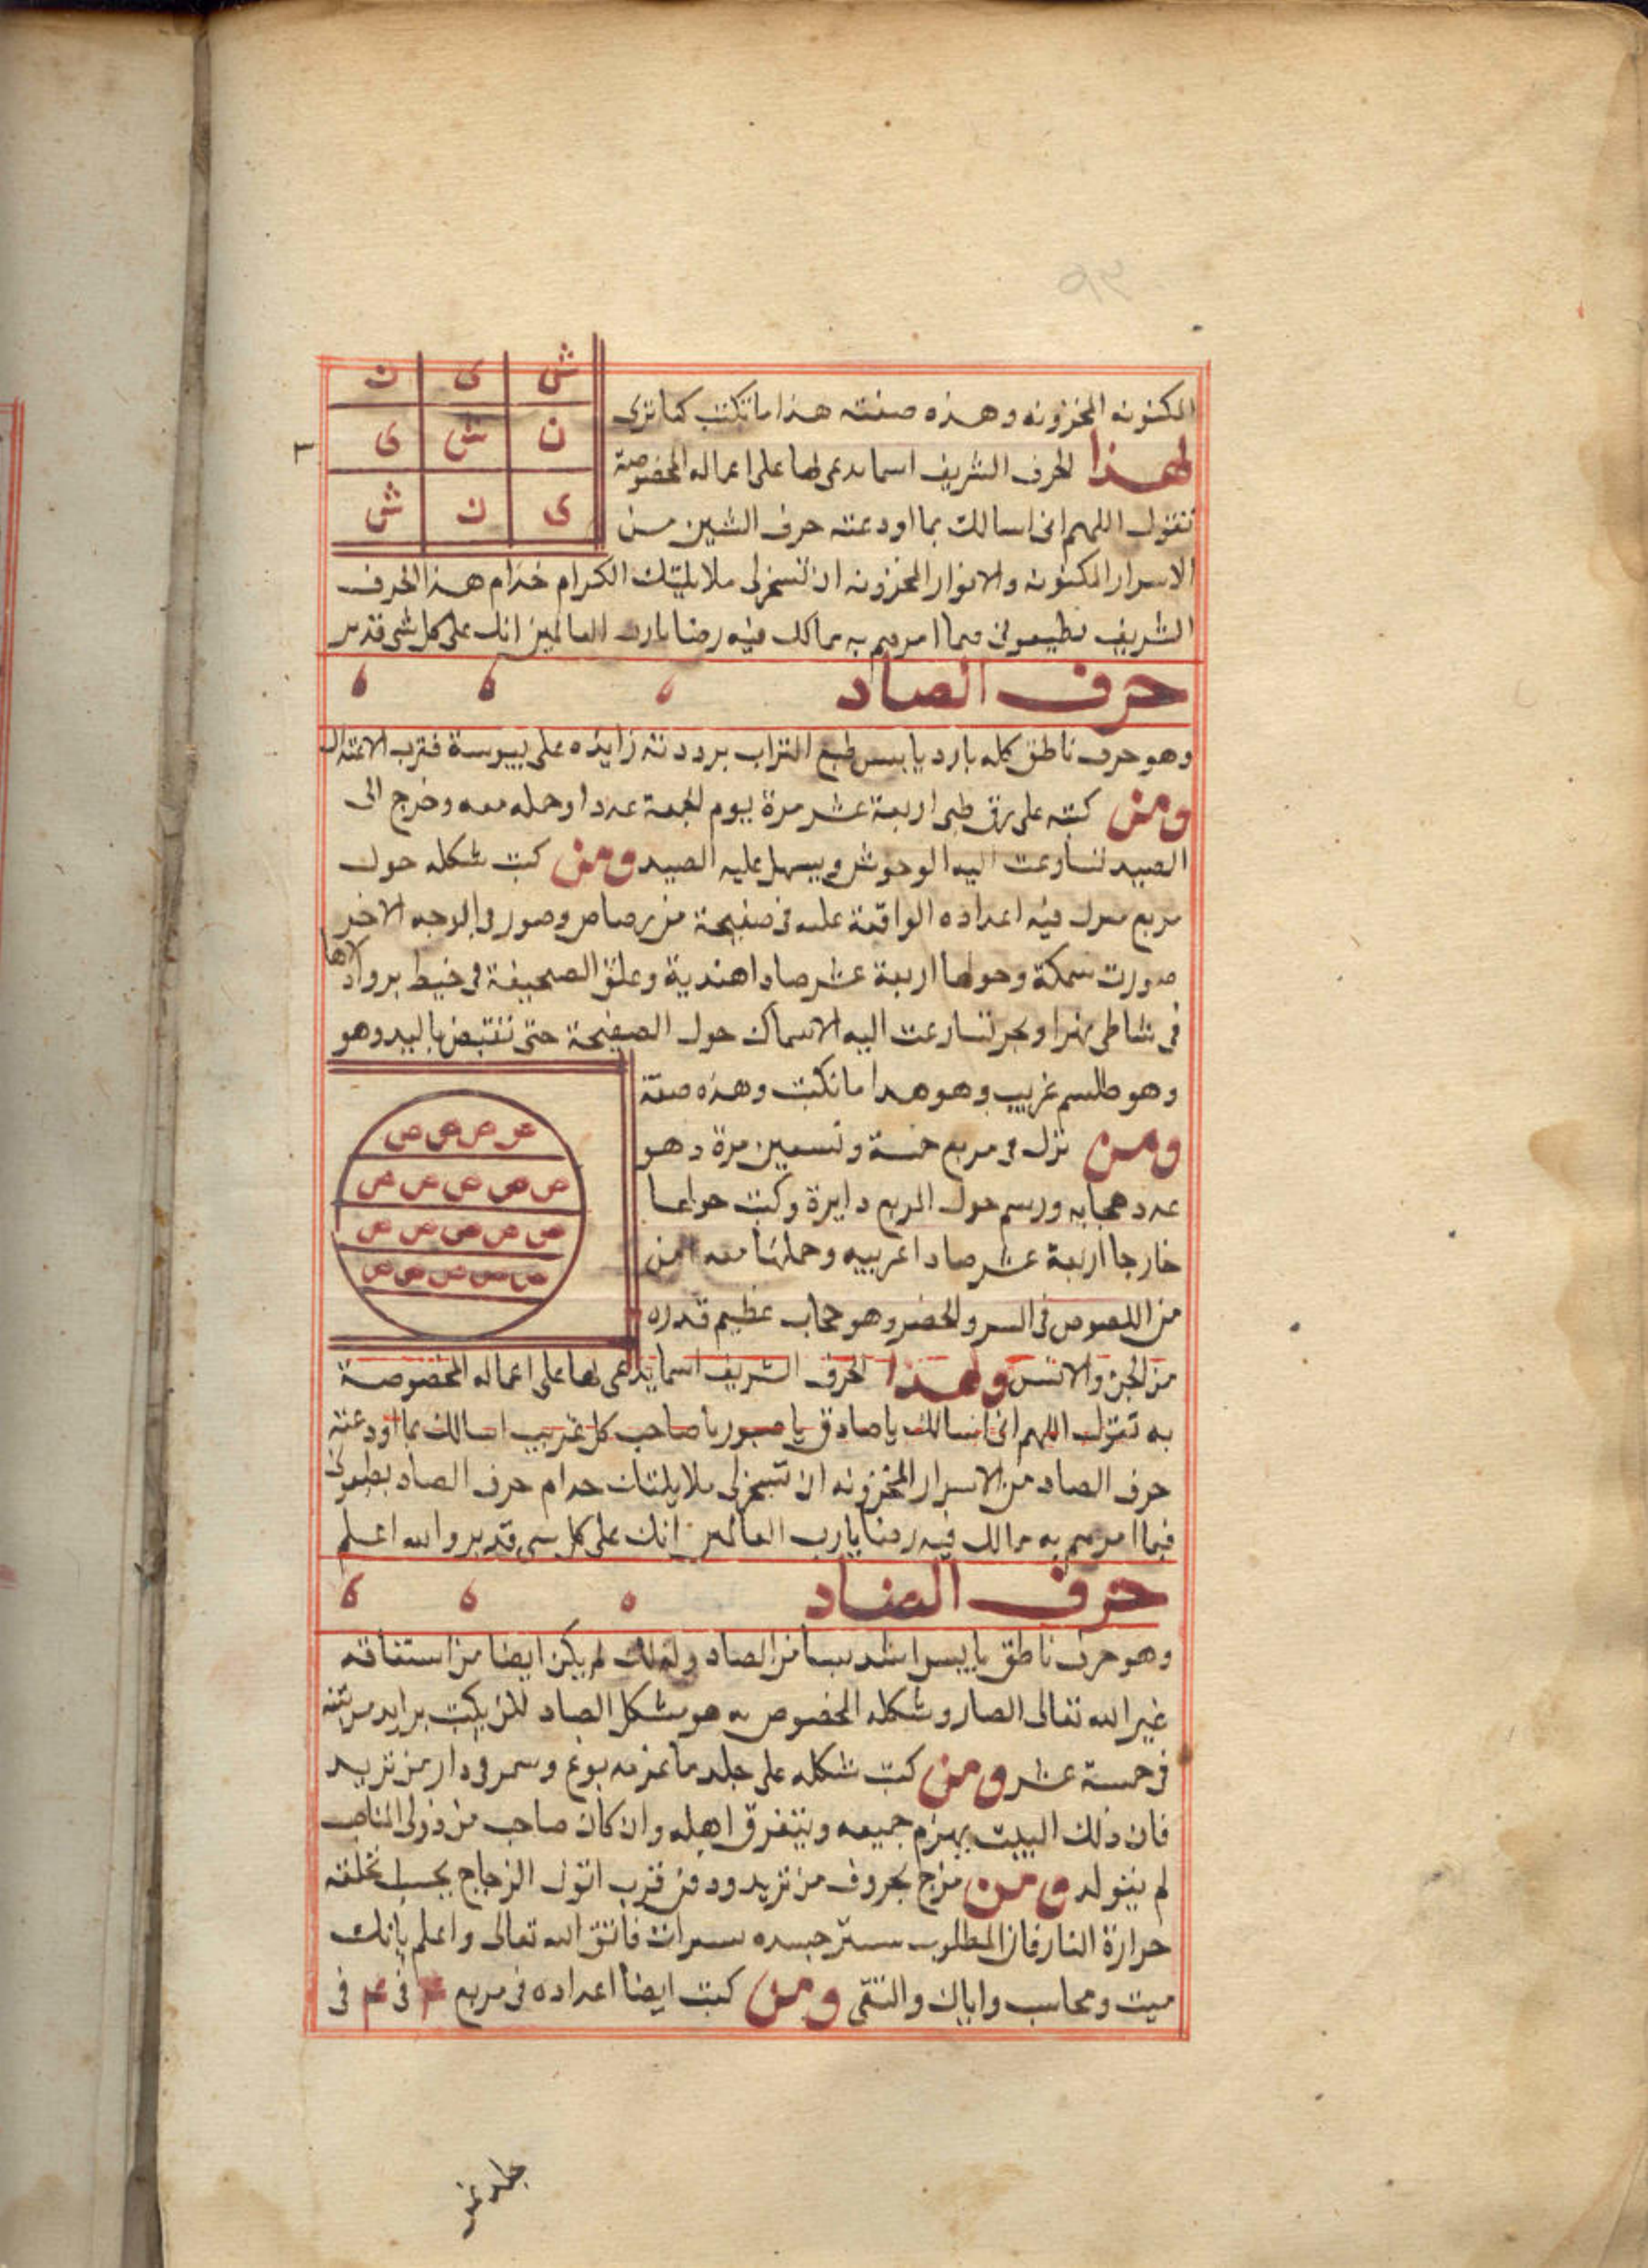 المكنونه المخزونه وهذه صفته هذا ما تكتب كما ترى
ش ى ن
ن ش ى
ى ن ش
لهذا الحرف الشريف اسما يدعى لها على اعماله المخصوصة
تقول اللهم انى اسالك بما اودعته حرف الشين من
الاسرار المكنونه والانوار المخزونه ان تسخر لى ملايكتك الكرام خدام هذا الحرف
الشريف يطيعونى فيما امرهم به مما لك فيه رضا يارب العالمين انك على كل شى قدير
حرف الصاد
وهو حرف ناطق كله بارد يابس طبع التراب برودته زايده على يبوسة قرب الاعتدال
ومن كتبه على رق ظبى اربعة عشر مرة يوم الجمعة عددا وحمله معه وخرج الى
الصيد لتسارعت اليه الوحوش ويسهل عليه الصيد ومن كتب شكله حول
مربع منزل فيه اعداده الواقعة عليه فى صفيحة من رصاص وصور فى الوجه الاخر
صورت سمكة وحولها اربعة عشر صادا هندية وعلق الصحيفة فى خيط
فى شاطى نهر او بحر لتسارعت اليه الاسماك حول الصفيحة حتى تقتبض باليد وهو
وهو طلسم غريب وهو هذا ما تكتب وهذه صفة
ص ص ص ص
ص ص ص ص ص
ص ص ص ص ص
ص ص ص ص ص
ومن نزل فى مربع خمسة وتسعين مرة وهو
عدد حجابه ورسم حول المربع دايرة وكتب حولها
خارجا اربعة عشر صادا عربيه وحملها معه امن
من اللصوص فى السر والحضر وهو حجاب عظيم قدره
من الجن والانس ولهذا الحرف الشريف اسما يدعى لها على اعماله المخصوصة
به تقول اللهم انى اسالك يا صادق يا صبور يا صاحب كل غريب اسالك بما اودعته
حرف الصاد من الاسرار المخزونه ان تسخر لى ملايكتك خدام حرف الصاد يطيعونى
فيما امرهم به مما لك فيه رضا يارب العالمين انك على كل شى قدير والله اعلم
حرف الضاد
وهو حرف ناطق يابس اشد يبسا من الصاد ولذلك لم يكن ايضا من استقاقه
غير الله تعالى الضار وشكله المخصوص به هو شكل الصاد لكن يكتب مرتبته
فى خمسة عشر ومن كتب شكله على جلد ماعز مدبوغ وسمر فى دار من تريد
فان ذلك البيت يهزم جميعه ويتفرق اهله وان كان صاحب من ذولى المناصب
لم يتولد ومن مزج بحروف من تريد ودفن قرب اتون الزجاج بحسب تخلفه
حرارة النار فان المطلوب جسده فاتق الله تعالى واعلم بانك
ميت ومحاسب واياك والتقى ومن كتب ايضا اعداده فى مربع ٤ فى ٤ فى
جلد